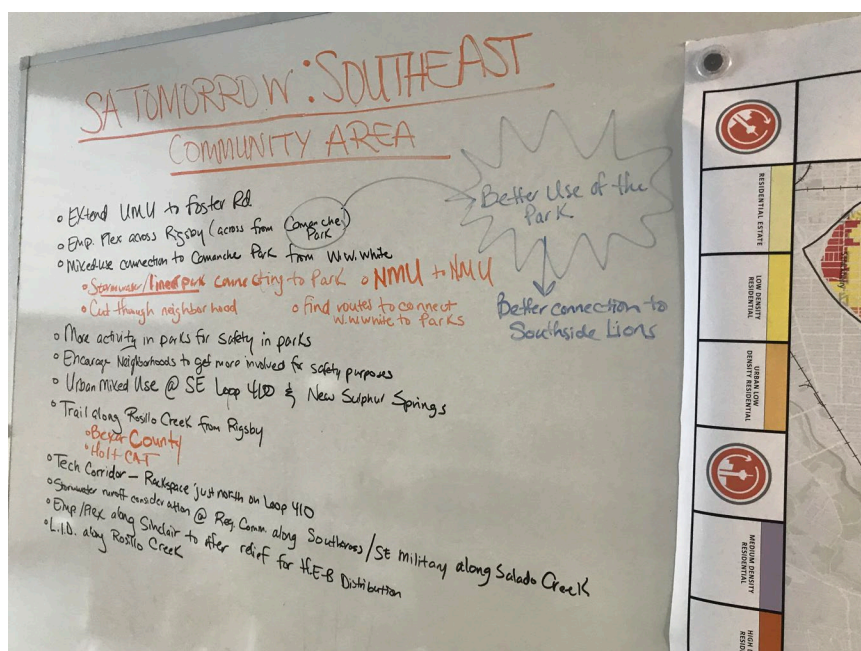 SA TOMORROW: SOUTHEAST
COMMUNITY AREA
• Extend UMU to Foster Rd
• Emp. Flex across Rigsby (across from Comanche
Park)
• Mixed-use connection to Comanche Park from W.W. White
• Stormwater/linear park connecting to Park • NMU to NMU
• Cut through neighborhood
• Find routes to connect
W.W. White to Parks
Better Use of the
Park
Better connection to
Southside Lions
• More activity in parks for safety in parks
• Encorage Neighborhoods to get more involved for safety purposes
• Urban Mixed Use @ SE Loop 410 & New Sulphur Springs
• Trail along Rosillo Creek from Rigsby
• Bexar County
• Holt CAT
• Tech Corridor - Rackspace just north on Loop 410
• Stormwater runoff consideration @ Reg. Comm along Southcross/SE Military along Salado Creek
• Emp/Flex along Sinclair to offer relief for H.E.B Distribution
• L.I.D. along Rosillo Creek
RESIDENTIAL ESTATE
LOW DENSITY
RESIDENTIAL
URBAN LOW
DENSITY RESIDENTIAL
MEDIUM DENSITY
RESIDENTIAL
HIGH